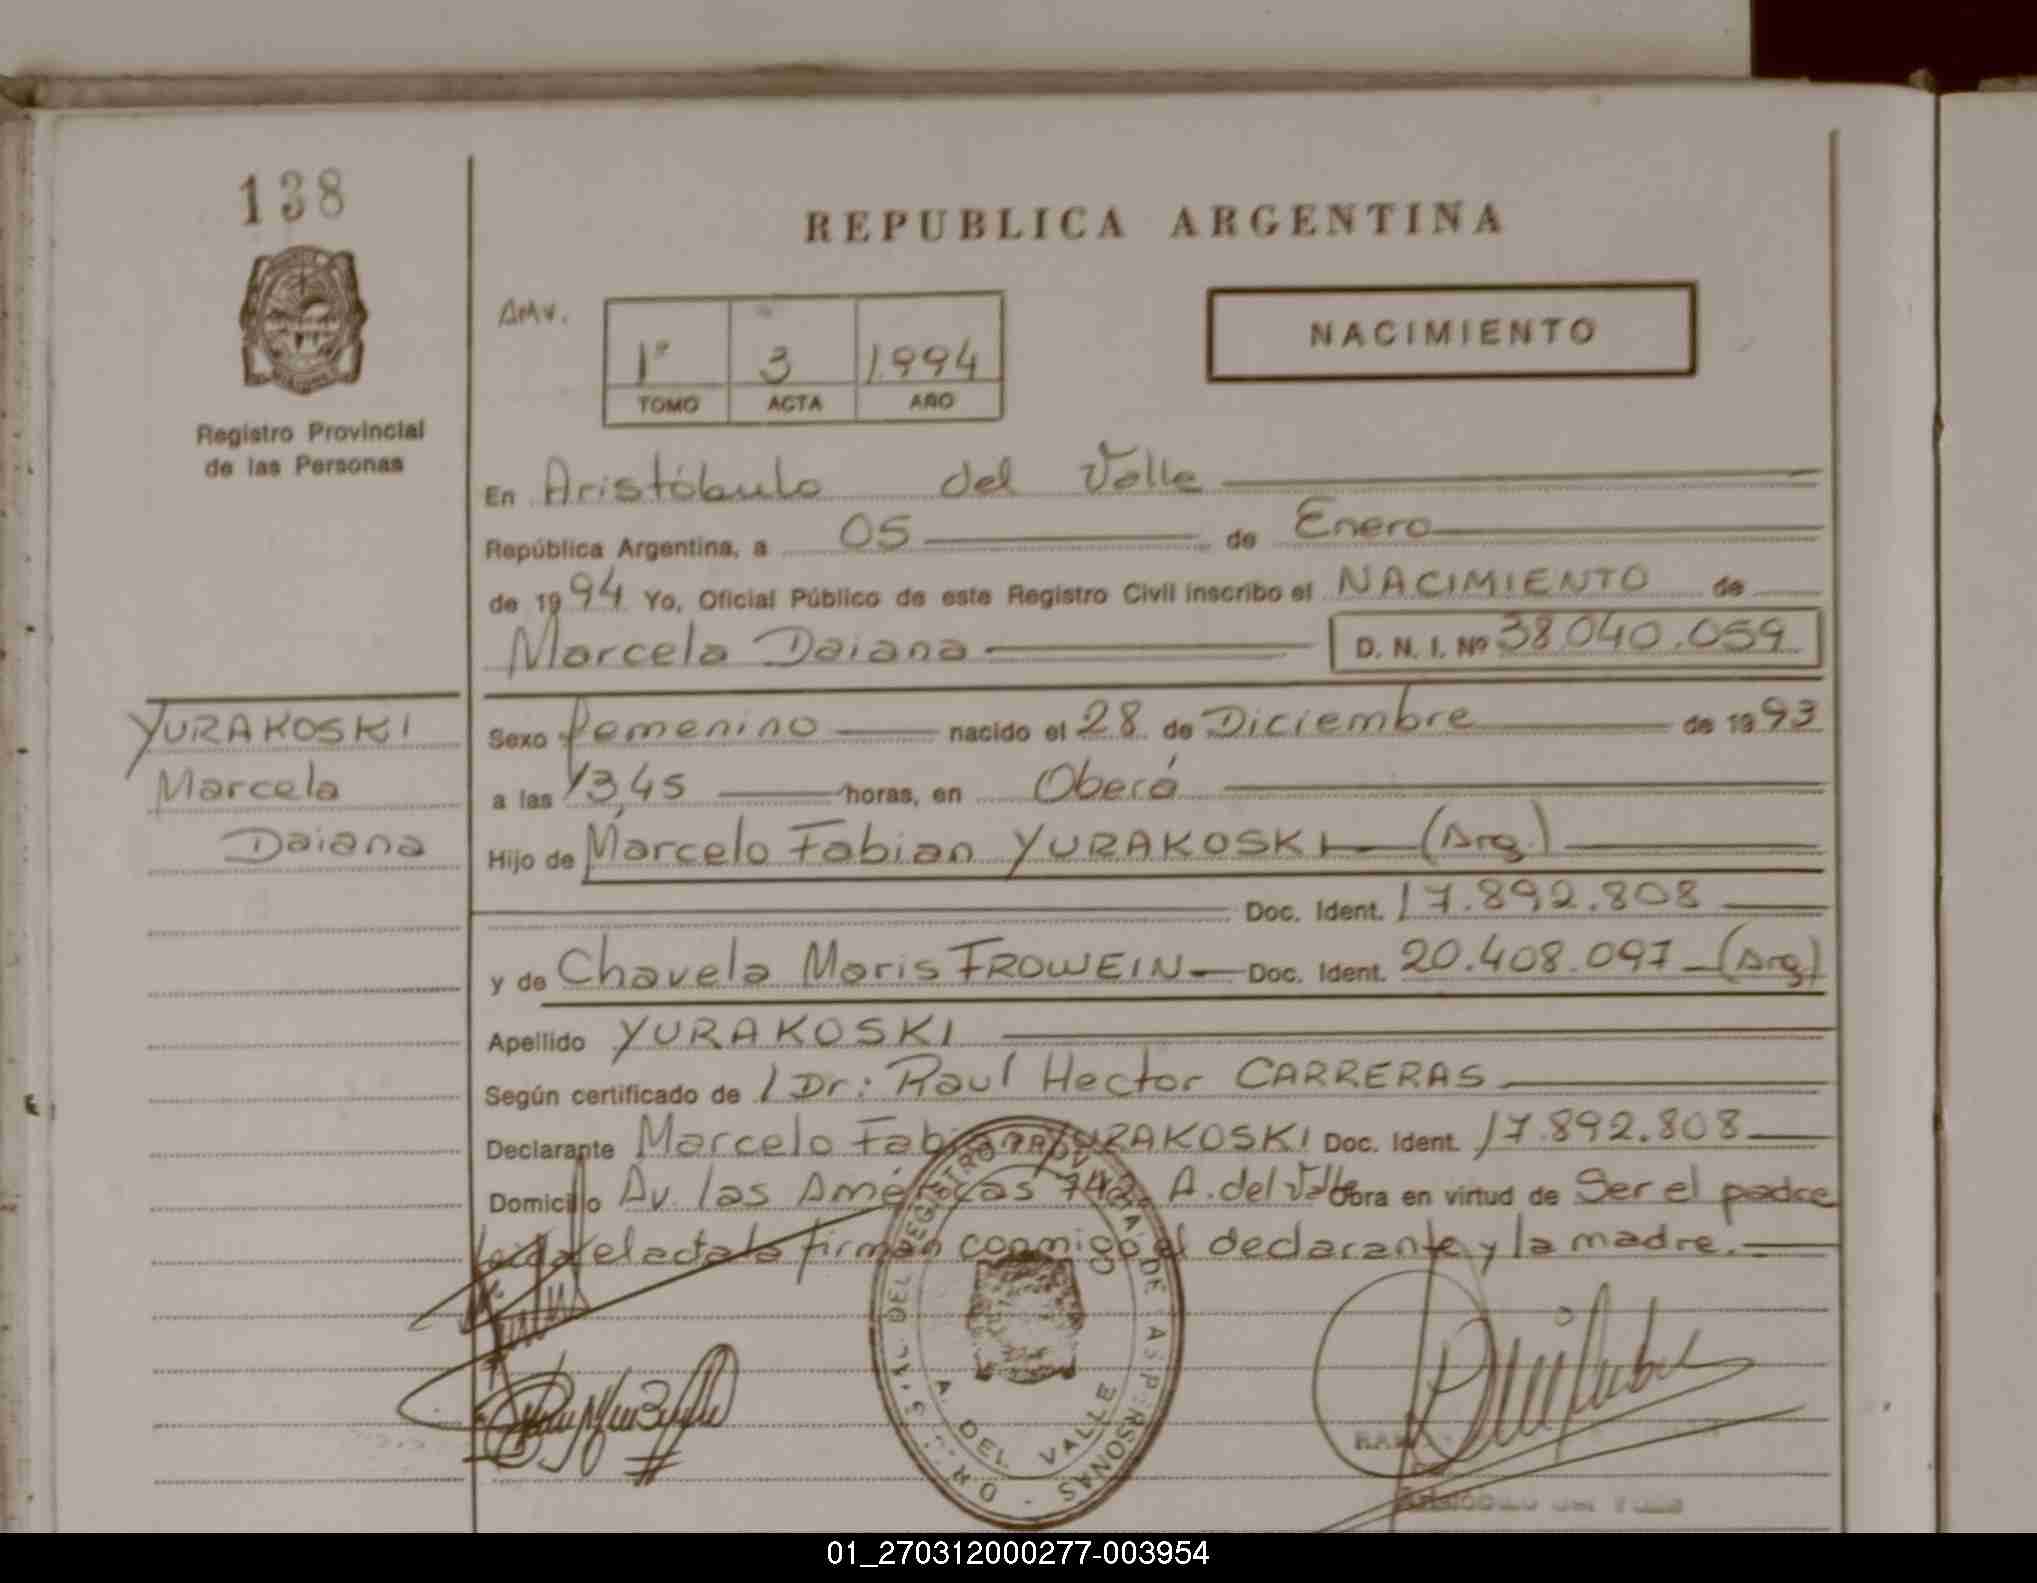 138
REPUBLICA ARGENTINA
AMV.
1º 3 1994
TOMO ACTA AÑO
NACIMIENTO
Registro Provincial
de las Personas
En Aristóbulo del Valle
República Argentina, a 05 de Enero
de 1994 Yo, Oficial Público de este Registro Civil inscribo el NACIMIENTO de
Marcela Daiana D. N. I. Nº 38.040.059
YURAKOSKI
Marcela
Daiana
Sexo femenino nacido el 28 de Diciembre de 1993
a las 13,45 horas, en Oberá
Hijo de Marcelo Fabian YURAKOSKI (Arg.)
Doc. Ident. 17.892.808
y de Chavela Maris FROWEIN Doc. Ident. 20.408.097 (Arg)
Apellido YURAKOSKI
Según certificado de Dr: Raul Hector CARRERAS
Declarante Marcelo Fabian YURAKOSKI Doc. Ident. 17.892.808
Domicilio Av. las Américas 742 A. del Valle Obra en virtud de Ser el padre
Leida el acta la firman conmigo el declarante y la madre.
A. DEL VALLE
01_270312000277-003954